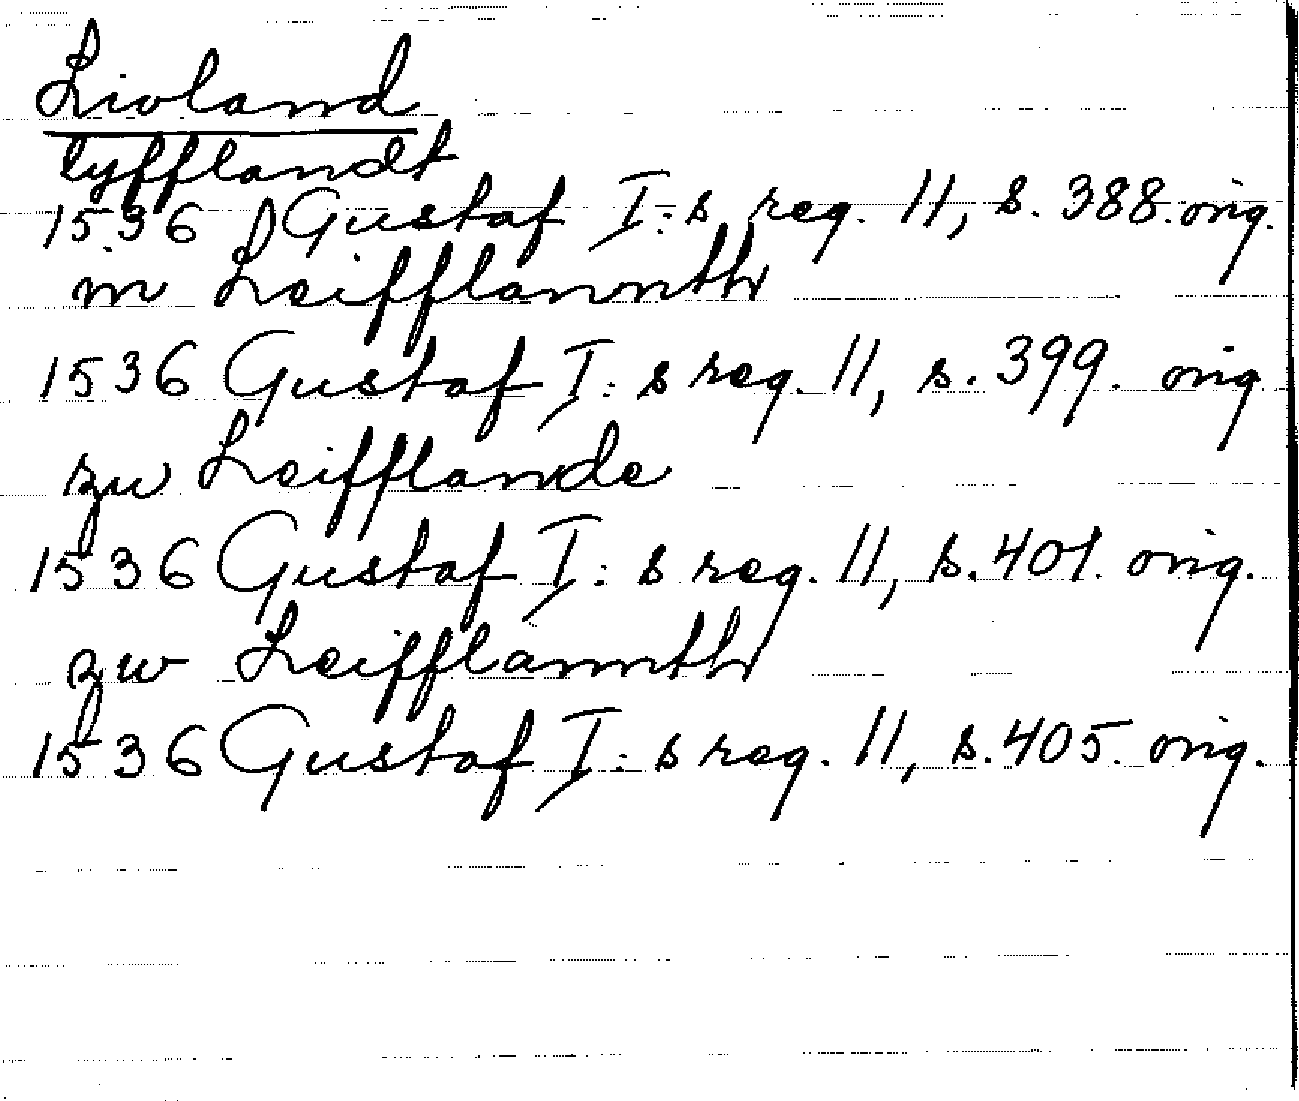 Livland
lyfflandt
1536 Gustaf I:s reg. 11, s. 388. orig.
in Leifflannth
1536 Gustaf I:s reg. 11, s. 399. orig
zu Leifflande
1536 Gustaf I:s reg. 11, s. 401. orig.
zw Leifflannth
1536 Gustaf I:s reg. 11, s. 405. orig.